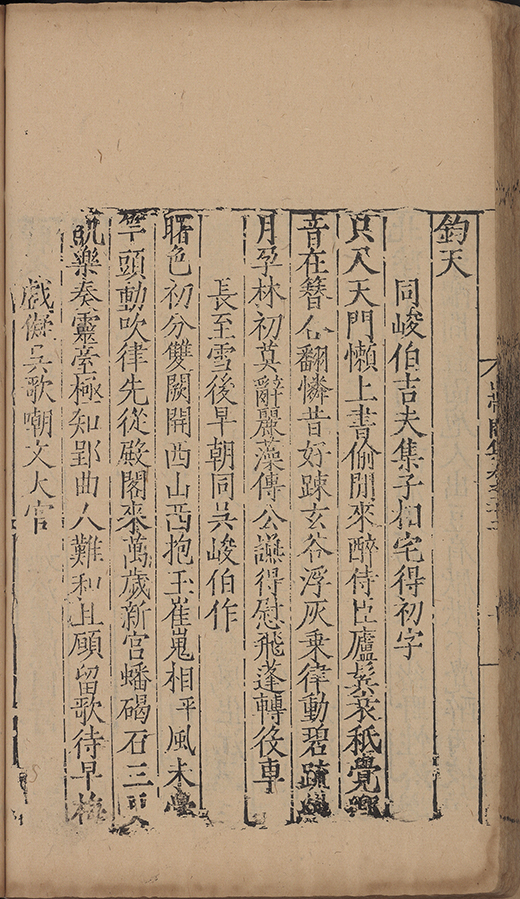 鈞天
同峻伯吉夫集子相宅得初字
只尺天門懶上書偷閒來醉侍臣廬鬂衰秪覺
音在簪公翻憐昔好踈玄谷浮灰乗律動碧
月孕林初莫辭麗藻傳公讌得慰飛蓬轉後車
長至雪後早朝同吳峻伯作
曙色初分雙闕開西山西抱玉崔嵬相竿風未
竿頭動吹律先從殿閣來萬歲新宫蟠碣石三
肌樂奏靈臺極知郢曲人難和且顧留歌待早梅
戲儗吳歌嘲文大官